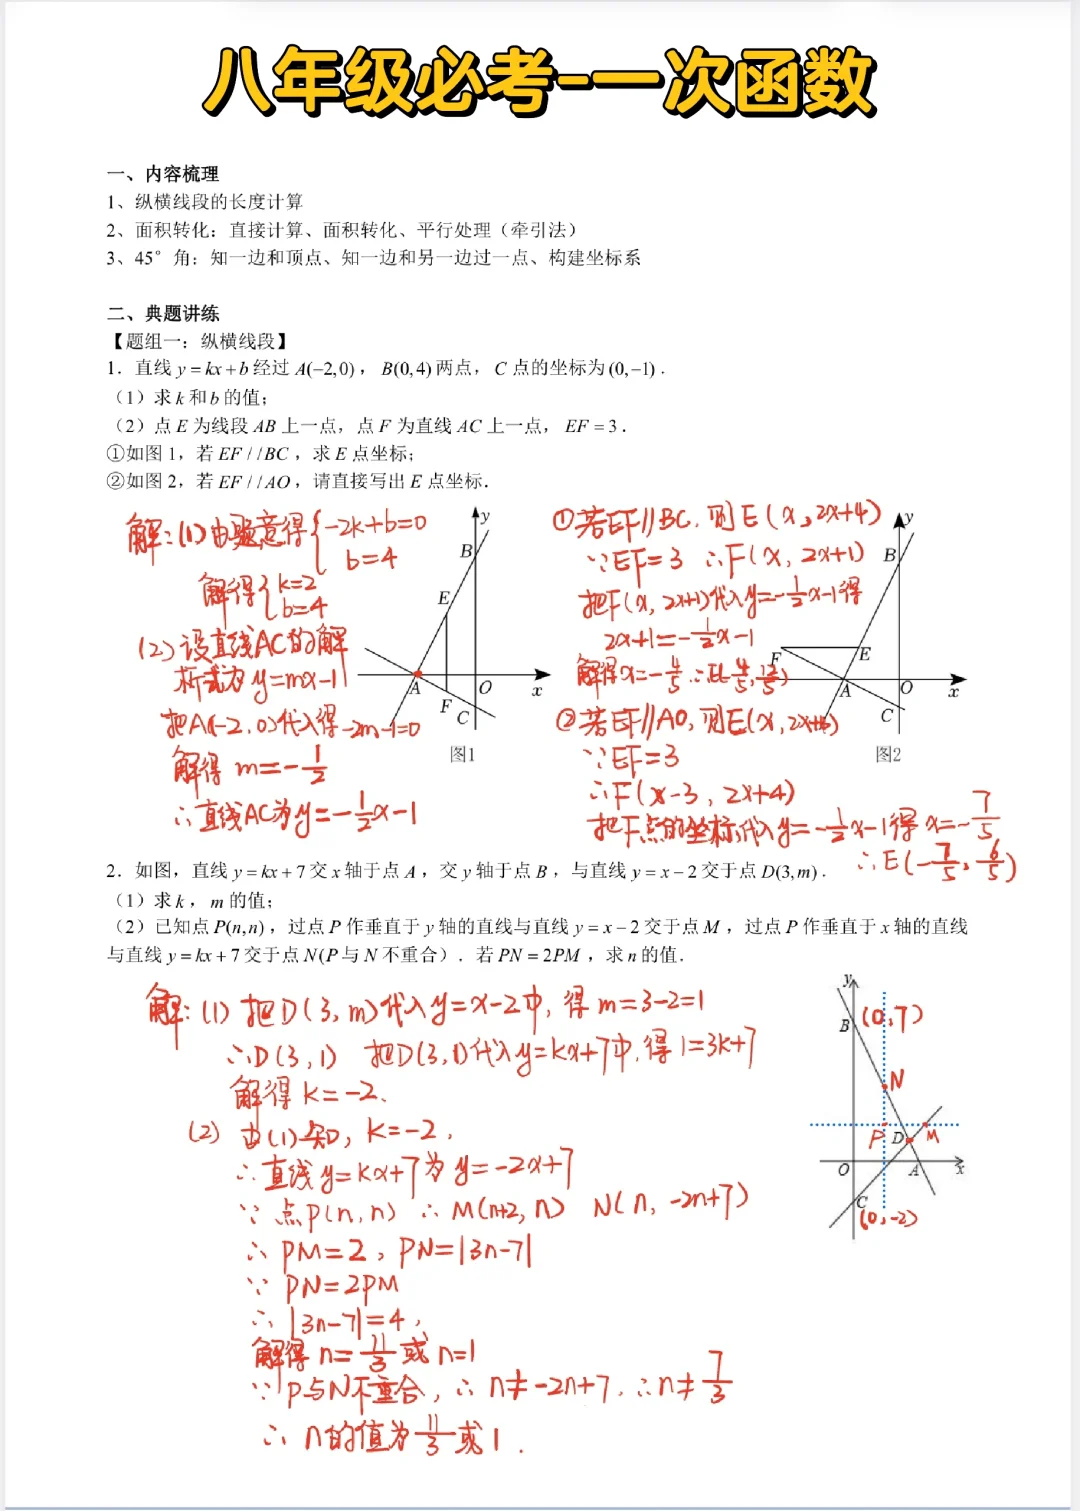 八年级必考-一次函数
一、内容梳理
1、纵横线段的长度计算
2、面积转化：直接计算、面积转化、平行处理（牵引法）
3、45°角：知一边和顶点、知一边和另一边过一点、构建坐标系
二、典题讲练
【题组一：纵横线段】
1．直线 y = kx + b 经过 A(−2,0)，B(0,4) 两点，C 点的坐标为 (0,−1)．
（1）求 k 和 b 的值；
（2）点 E 为线段 AB 上一点，点 F 为直线 AC 上一点，EF = 3．
①如图 1，若 EF / /BC，求 E 点坐标；
②如图 2，若 EF / /AO，请直接写出 E 点坐标．
解：(1)由题意得{-2k+b=0
b=4
解得{k=2
b=4
(2)设直线AC的解
析式为y=mx-1
把A(-2,0)代入得-2m-1=0
解得 m=-1/2
∴直线AC为y=-1/2x-1
y
B
E
A
O
x
F
C
图1
①若EF∥BC，则E(x,2x+4)
∵EF=3 ∴F(x,2x+1)
把F(x,2x+1)代入y=-1/2x-1得
2x+1=-1/2x-1
解得x=-4/5 ∴E(-4/5,12/5)
②若EF∥AO，则E(x,2x+4)
∵EF=3
∴F(x-3,2x+4)
把F点的坐标代入y=-1/2x-1得x=-7/5
∴E(-7/5,6/5)
y
B
F
E
A
O
x
C
图2
2．如图，直线 y = kx + 7 交 x 轴于点 A，交 y 轴于点 B，与直线 y = x − 2 交于点 D(3,m)．
（1）求 k，m 的值；
（2）已知点 P(n,n)，过点 P 作垂直于 y 轴的直线与直线 y = x − 2 交于点 M，过点 P 作垂直于 x 轴的直线
与直线 y = kx + 7 交于点 N(P 与 N 不重合)．若 PN = 2PM，求 n 的值．
解：(1) 把D(3,m)代入y=x-2中，得m=3-2=1
∴D(3,1) 把D(3,1)代入y=kx+7中，得1=3k+7
解得 k=-2.
(2) 由(1)知，k=-2，
∴直线y=kx+7为y=-2x+7
∵点P(n,n) ∴M(n+2,n) N(n,-2n+7)
∴PM=2，PN=|3n-7|
∵PN=2PM
∴|3n-7|=4，
解得 n=11/3或n=1
∵P与N不重合，∴n≠-2n+7，∴n≠7/3
∴n的值为11/3或1.
y
B
(0,7)
N
P
D
M
O
A
x
C
(0,-2)